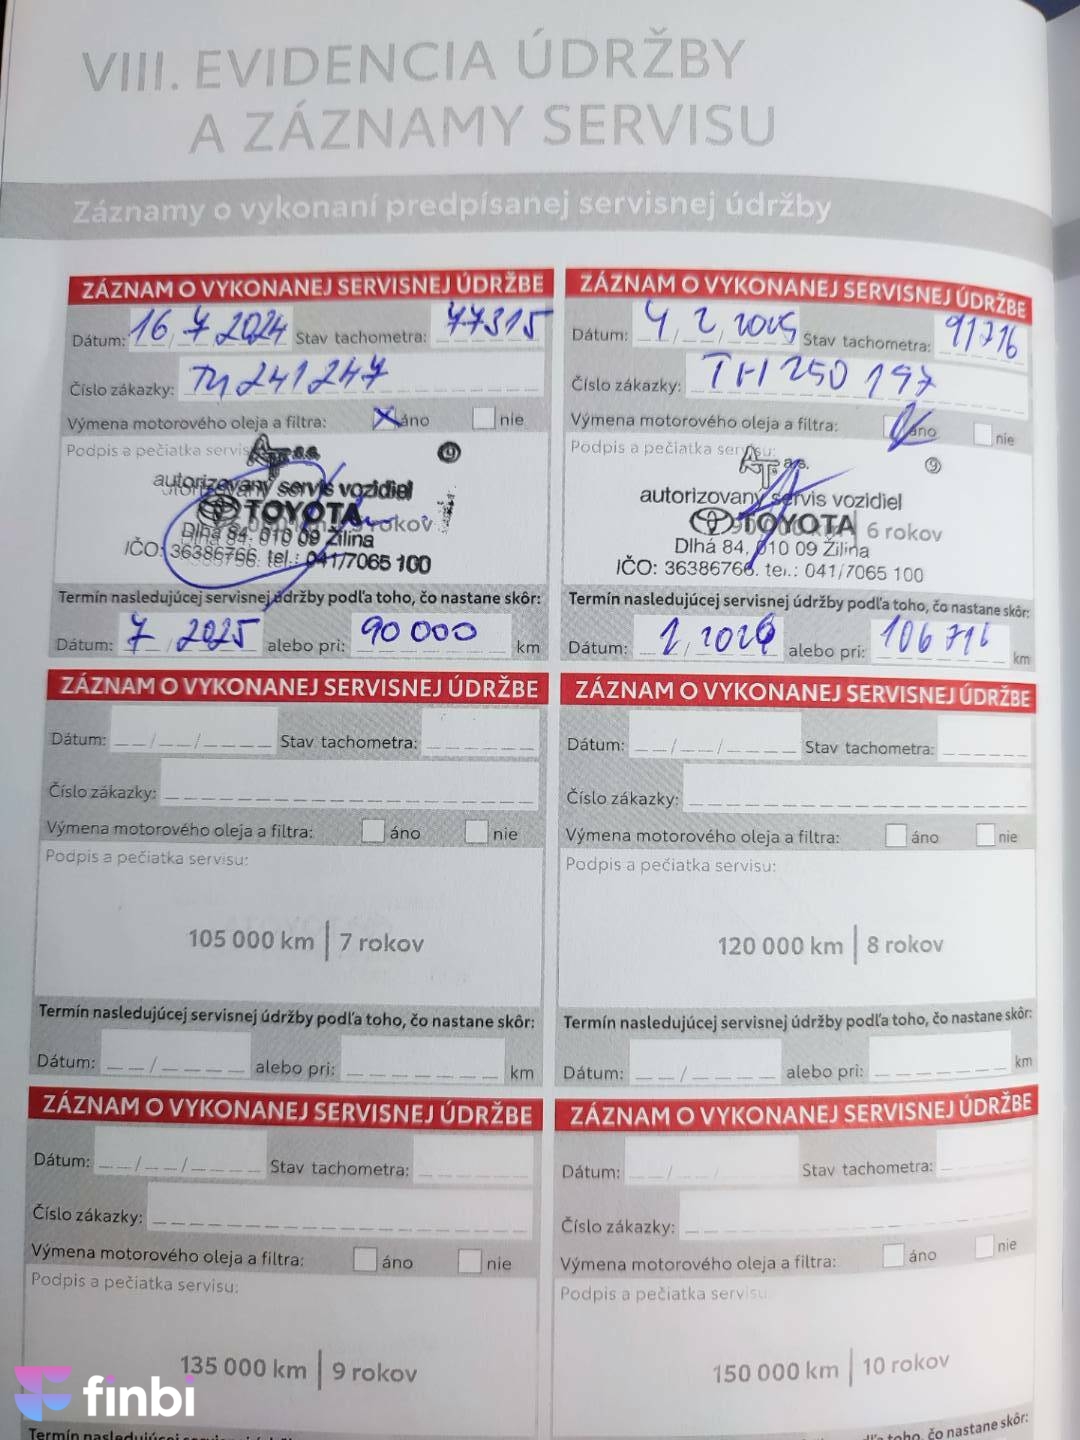 VIII. EVIDENCIA ÚDRŽBY
A ZÁZNAMY SERVISU
Záznamy o vykonaní predpísanej servisnej údržby
ZÁZNAM O VYKONANEJ SERVISNEJ ÚDRŽBE
Dátum: 16 / 7 2024 Stav tachometra: 77315
Číslo zákazky: TH241247
Výmena motorového oleja a filtra: áno nie
Podpis a pečiatka servisu
AT a.s. 9
autorizovaný servis vozidiel
TOYOTA rokov
Dlhá 84, 010 09 Žilina
IČO: 36386766. tel.: 041/7065 100
Termín nasledujúcej servisnej údržby podľa toho, čo nastane skôr:
Dátum: 7 / 2025 alebo pri: 90 000 km
ZÁZNAM O VYKONANEJ SERVISNEJ ÚDRŽBE
Dátum: 4 / 2 / 2025 Stav tachometra: 91716
Číslo zákazky: TH 250 197
Výmena motorového oleja a filtra: áno nie
Podpis a pečiatka servisu:
AT a.s. 9
autorizovaný servis vozidiel
TOYOTA 6 rokov
Dlhá 84, 010 09 Žilina
IČO: 36386766. tel.: 041/7065 100
Termín nasledujúcej servisnej údržby podľa toho, čo nastane skôr:
Dátum: 2 / 2026 alebo pri: 106 716 km
ZÁZNAM O VYKONANEJ SERVISNEJ ÚDRŽBE
Dátum: __/__/____ Stav tachometra:
Číslo zákazky:
Výmena motorového oleja a filtra: áno nie
Podpis a pečiatka servisu:
105 000 km | 7 rokov
Termín nasledujúcej servisnej údržby podľa toho, čo nastane skôr:
Dátum: __/____ alebo pri: km
ZÁZNAM O VYKONANEJ SERVISNEJ ÚDRŽBE
Dátum: __/__/____ Stav tachometra:
Číslo zákazky:
Výmena motorového oleja a filtra: áno nie
Podpis a pečiatka servisu:
120 000 km | 8 rokov
Termín nasledujúcej servisnej údržby podľa toho, čo nastane skôr:
Dátum: __/____ alebo pri: km
ZÁZNAM O VYKONANEJ SERVISNEJ ÚDRŽBE
Dátum: __/__/____ Stav tachometra:
Číslo zákazky:
Výmena motorového oleja a filtra: áno nie
Podpis a pečiatka servisu:
135 000 km | 9 rokov
ZÁZNAM O VYKONANEJ SERVISNEJ ÚDRŽBE
Dátum: __/__/____ Stav tachometra:
Číslo zákazky:
Výmena motorového oleja a filtra: áno nie
Podpis a pečiatka servisu:
150 000 km | 10 rokov
toho, čo nastane skôr:
finbi